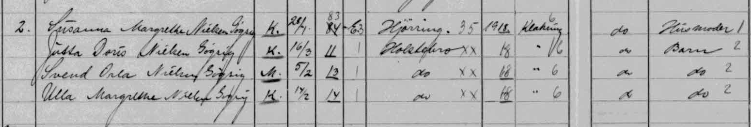 2. Susanna Margrethe Nielsen Gögrig K. 28/7 83 84 - E3 Hjörring 35 1918 Klakring 6 do Husmoder 1
Jutta Doris Nielsen Gögrig K. 16/3 11 1 Holstebro xx 18 " 6 do Barn 2
Svend Nielsen Gögrig M. 5/2 13 1 do xx 18 " 6 do do 2
Ulla Margrethe Nielsen Gögrig K. 14/2 14 1 do xx 18 " 6 do do 2